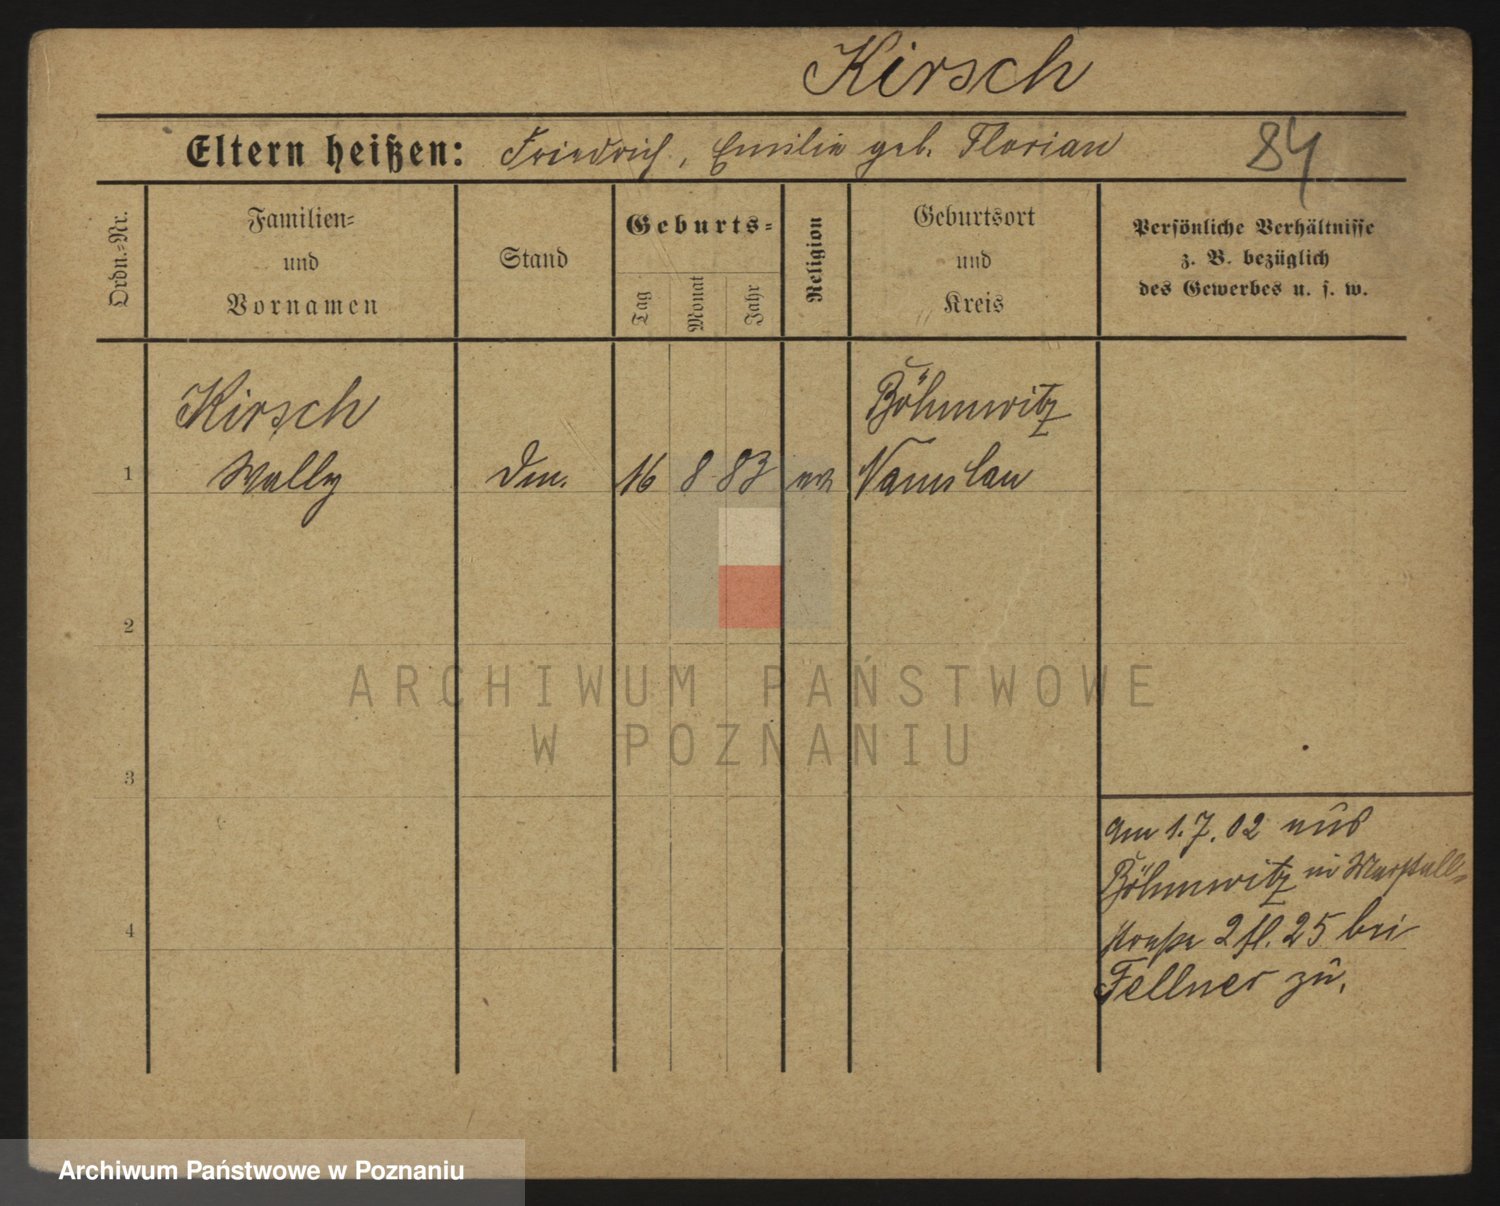 Kirsch
Eltern heißen: Friedrich, Emilie geb. Florian
84
Ordn.-Nr.
Familien-
und
Vornamen
Stand
Geburts-
Tag
Monat
Jahr
Religion
Geburtsort
und
Kreis
Persönliche Verhältnisse
z. B. bezüglich
des Gewerbes u. s. w.
Kirsch
Böhmwitz
1
Wally
16
8
83
ev.
Namslau
2
3
4
am 1.7.02 aus
Böhmwitz in Marstall-
straße 2 fl. 25 bei
Fellner zu.
ARCHIWUM PAŃSTWOWE
W POZNANIU
Archiwum Państwowe w Poznaniu